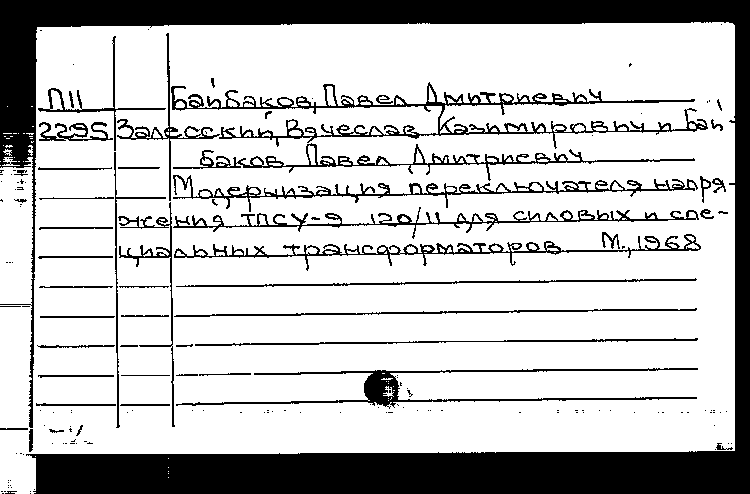 П11 Байбаков, Павел Дмитриевич
2295 Залесский, Вячеслав Казимирович и Бай-
баков, Павел Дмитриевич
Модернизация переключателя напря-
жения ТПСУ-9 120/11 для силовых и спе-
циальных трансформаторов М., 1968